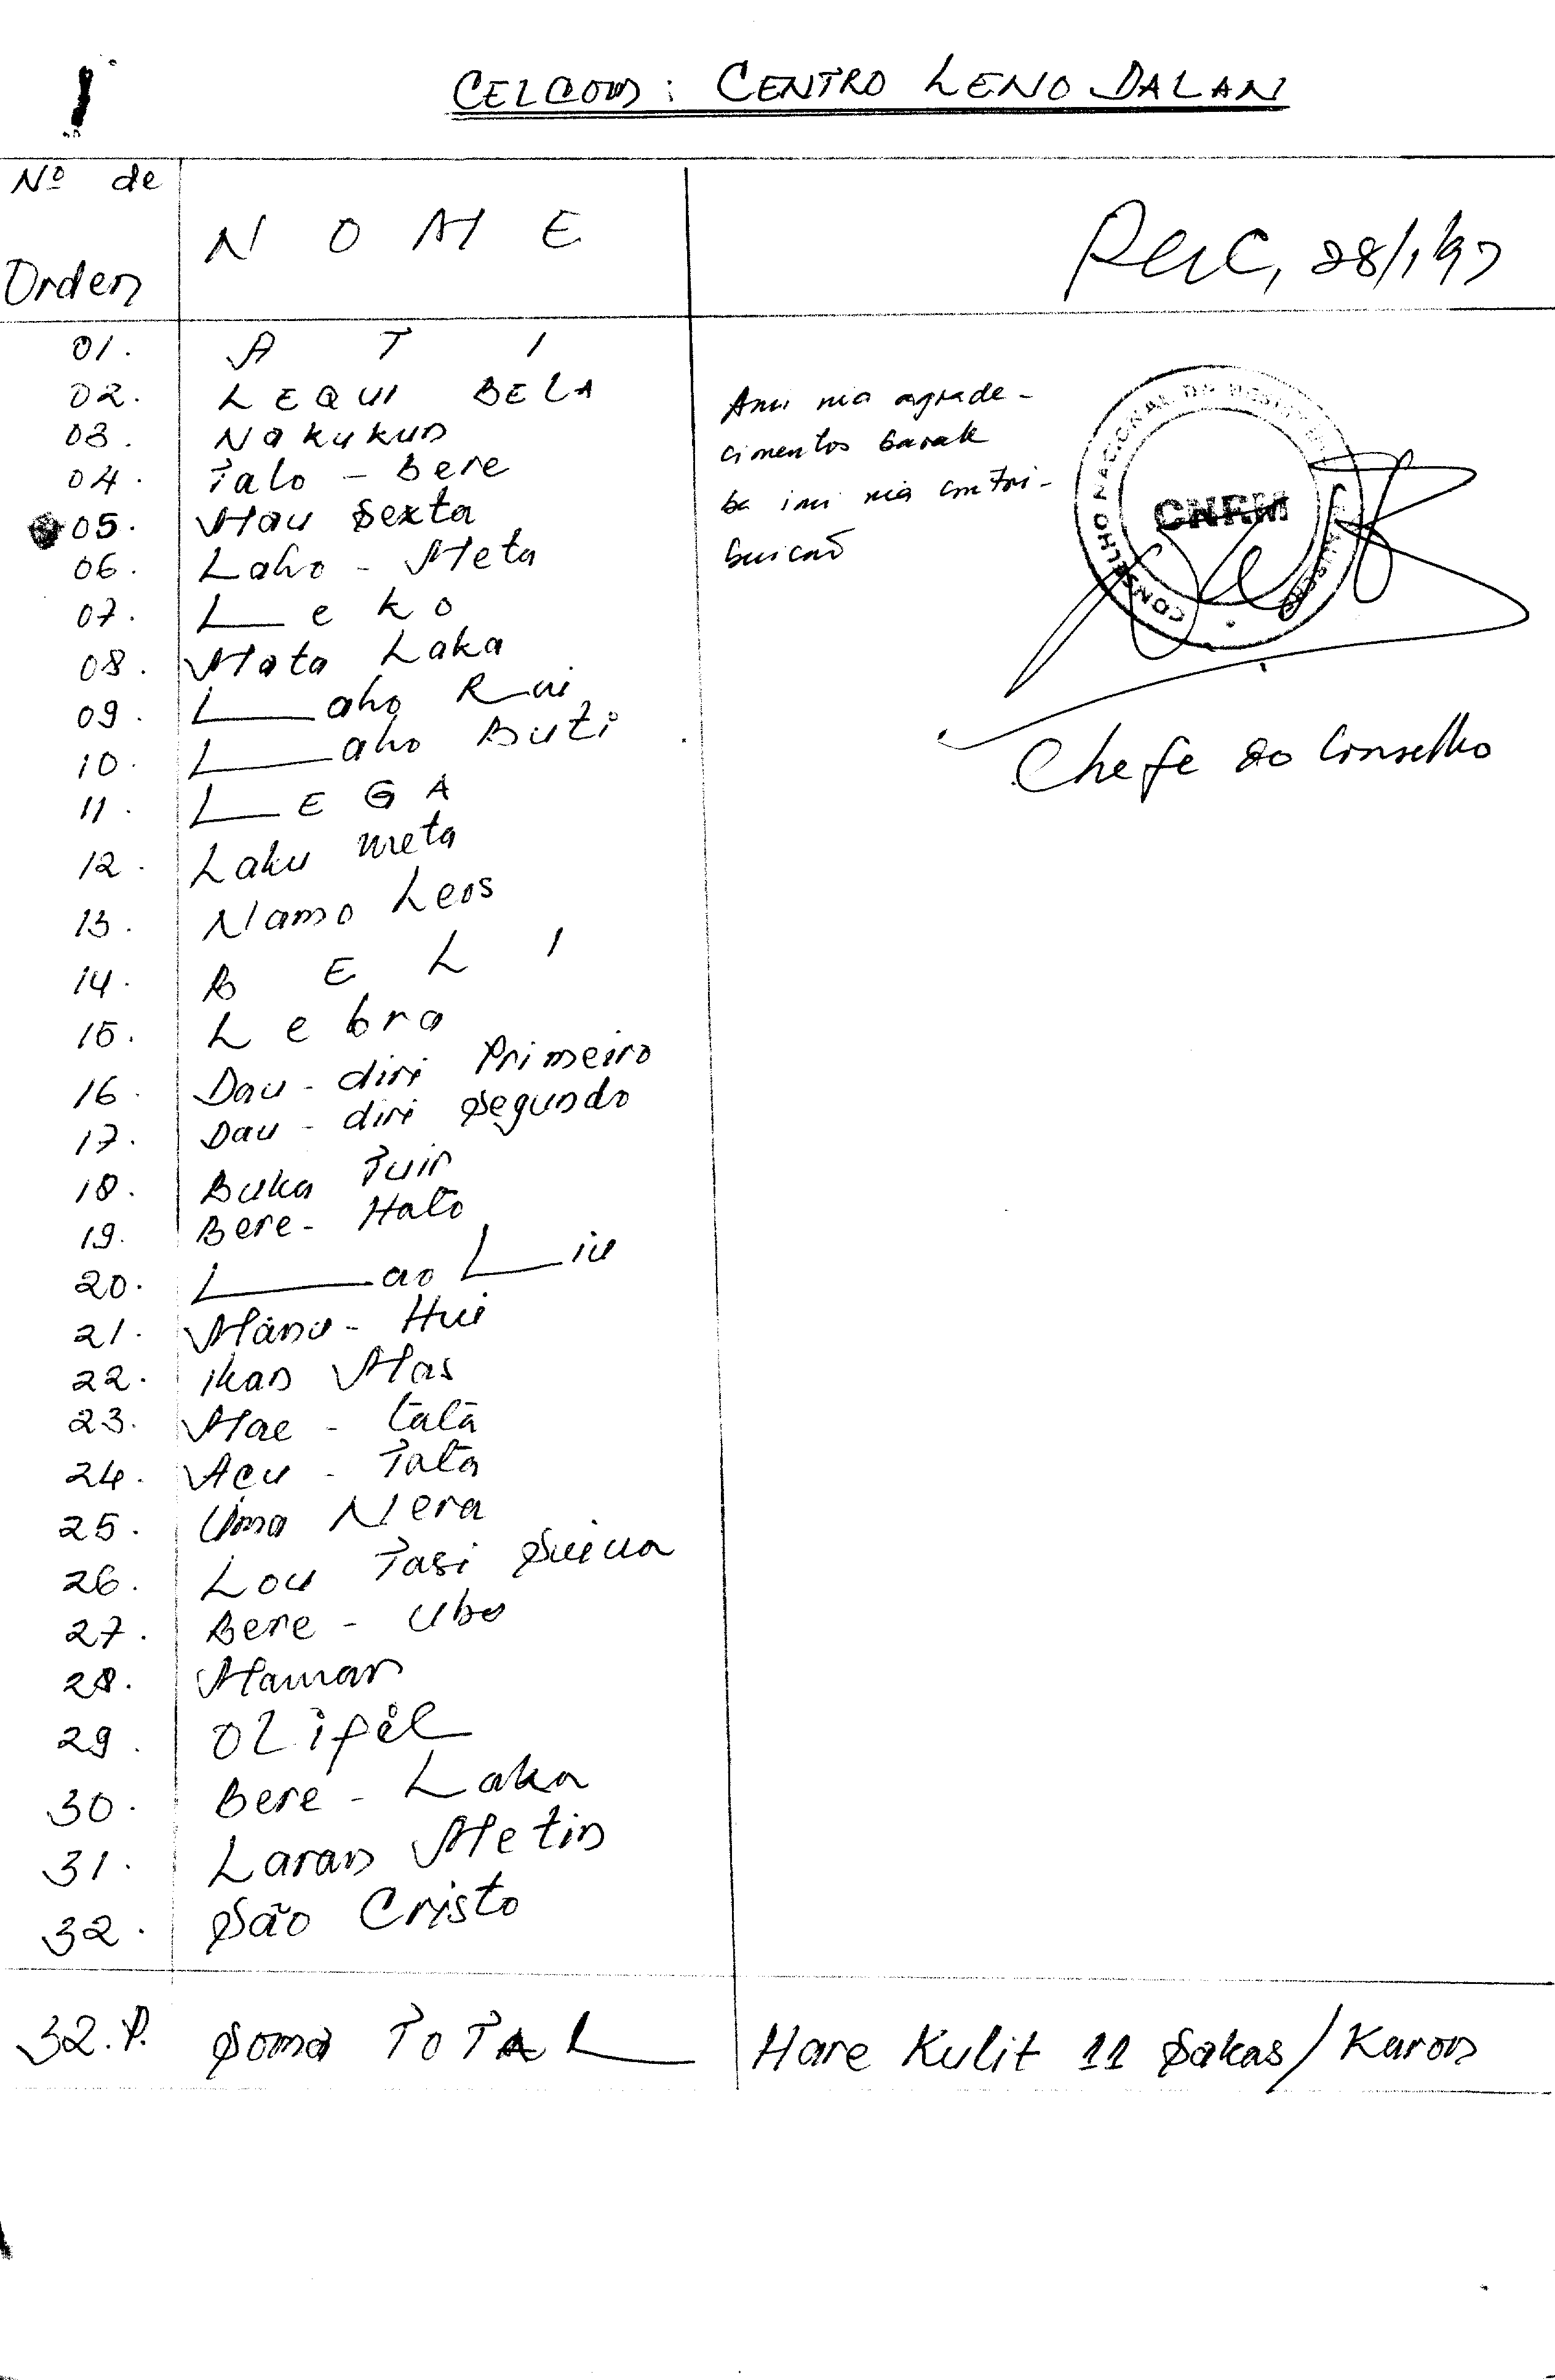 CELCOM: CENTRO LENO DALAN
Nº de Orden
NOME
Rec, 28/1/97
01. ATI
02. LEQUI BELA
03. Nakukun
04. Talo - Bere
05. Mau Sexta
06. Laho - Meta
07. Leko
08. Mata Laka
09. Laho Rui
10. Laho Buti
11. LEGA
12. Laku meta
13. Namo Leos
14. BELI
15. Lebra
16. Dau - diri Primeiro
17. Dau - diri Segundo
18. Buka Tuir
19. Bere - Hato
20. Lao Liu
21. Manu - Hui
22. ikan Mas
23. Mae - tata
24. Acu - Tata
25. Uma Nera
26. Lou Tasi
27. Bere - Ubu
28. Maman
29. Olifél
30. Bere - Laka
31. Laran Metin
32. São Cristo
Ami nia agrade-
cimentos barak
ba imi nia contri-
buicaõ
CONSELHO NACIONAL DA RESISTÊNCIA MAUBERE
CNRM
Chefe do Conselho
32. P. Soma TOTAL
Hare Kulit 11 Sakas/Karon